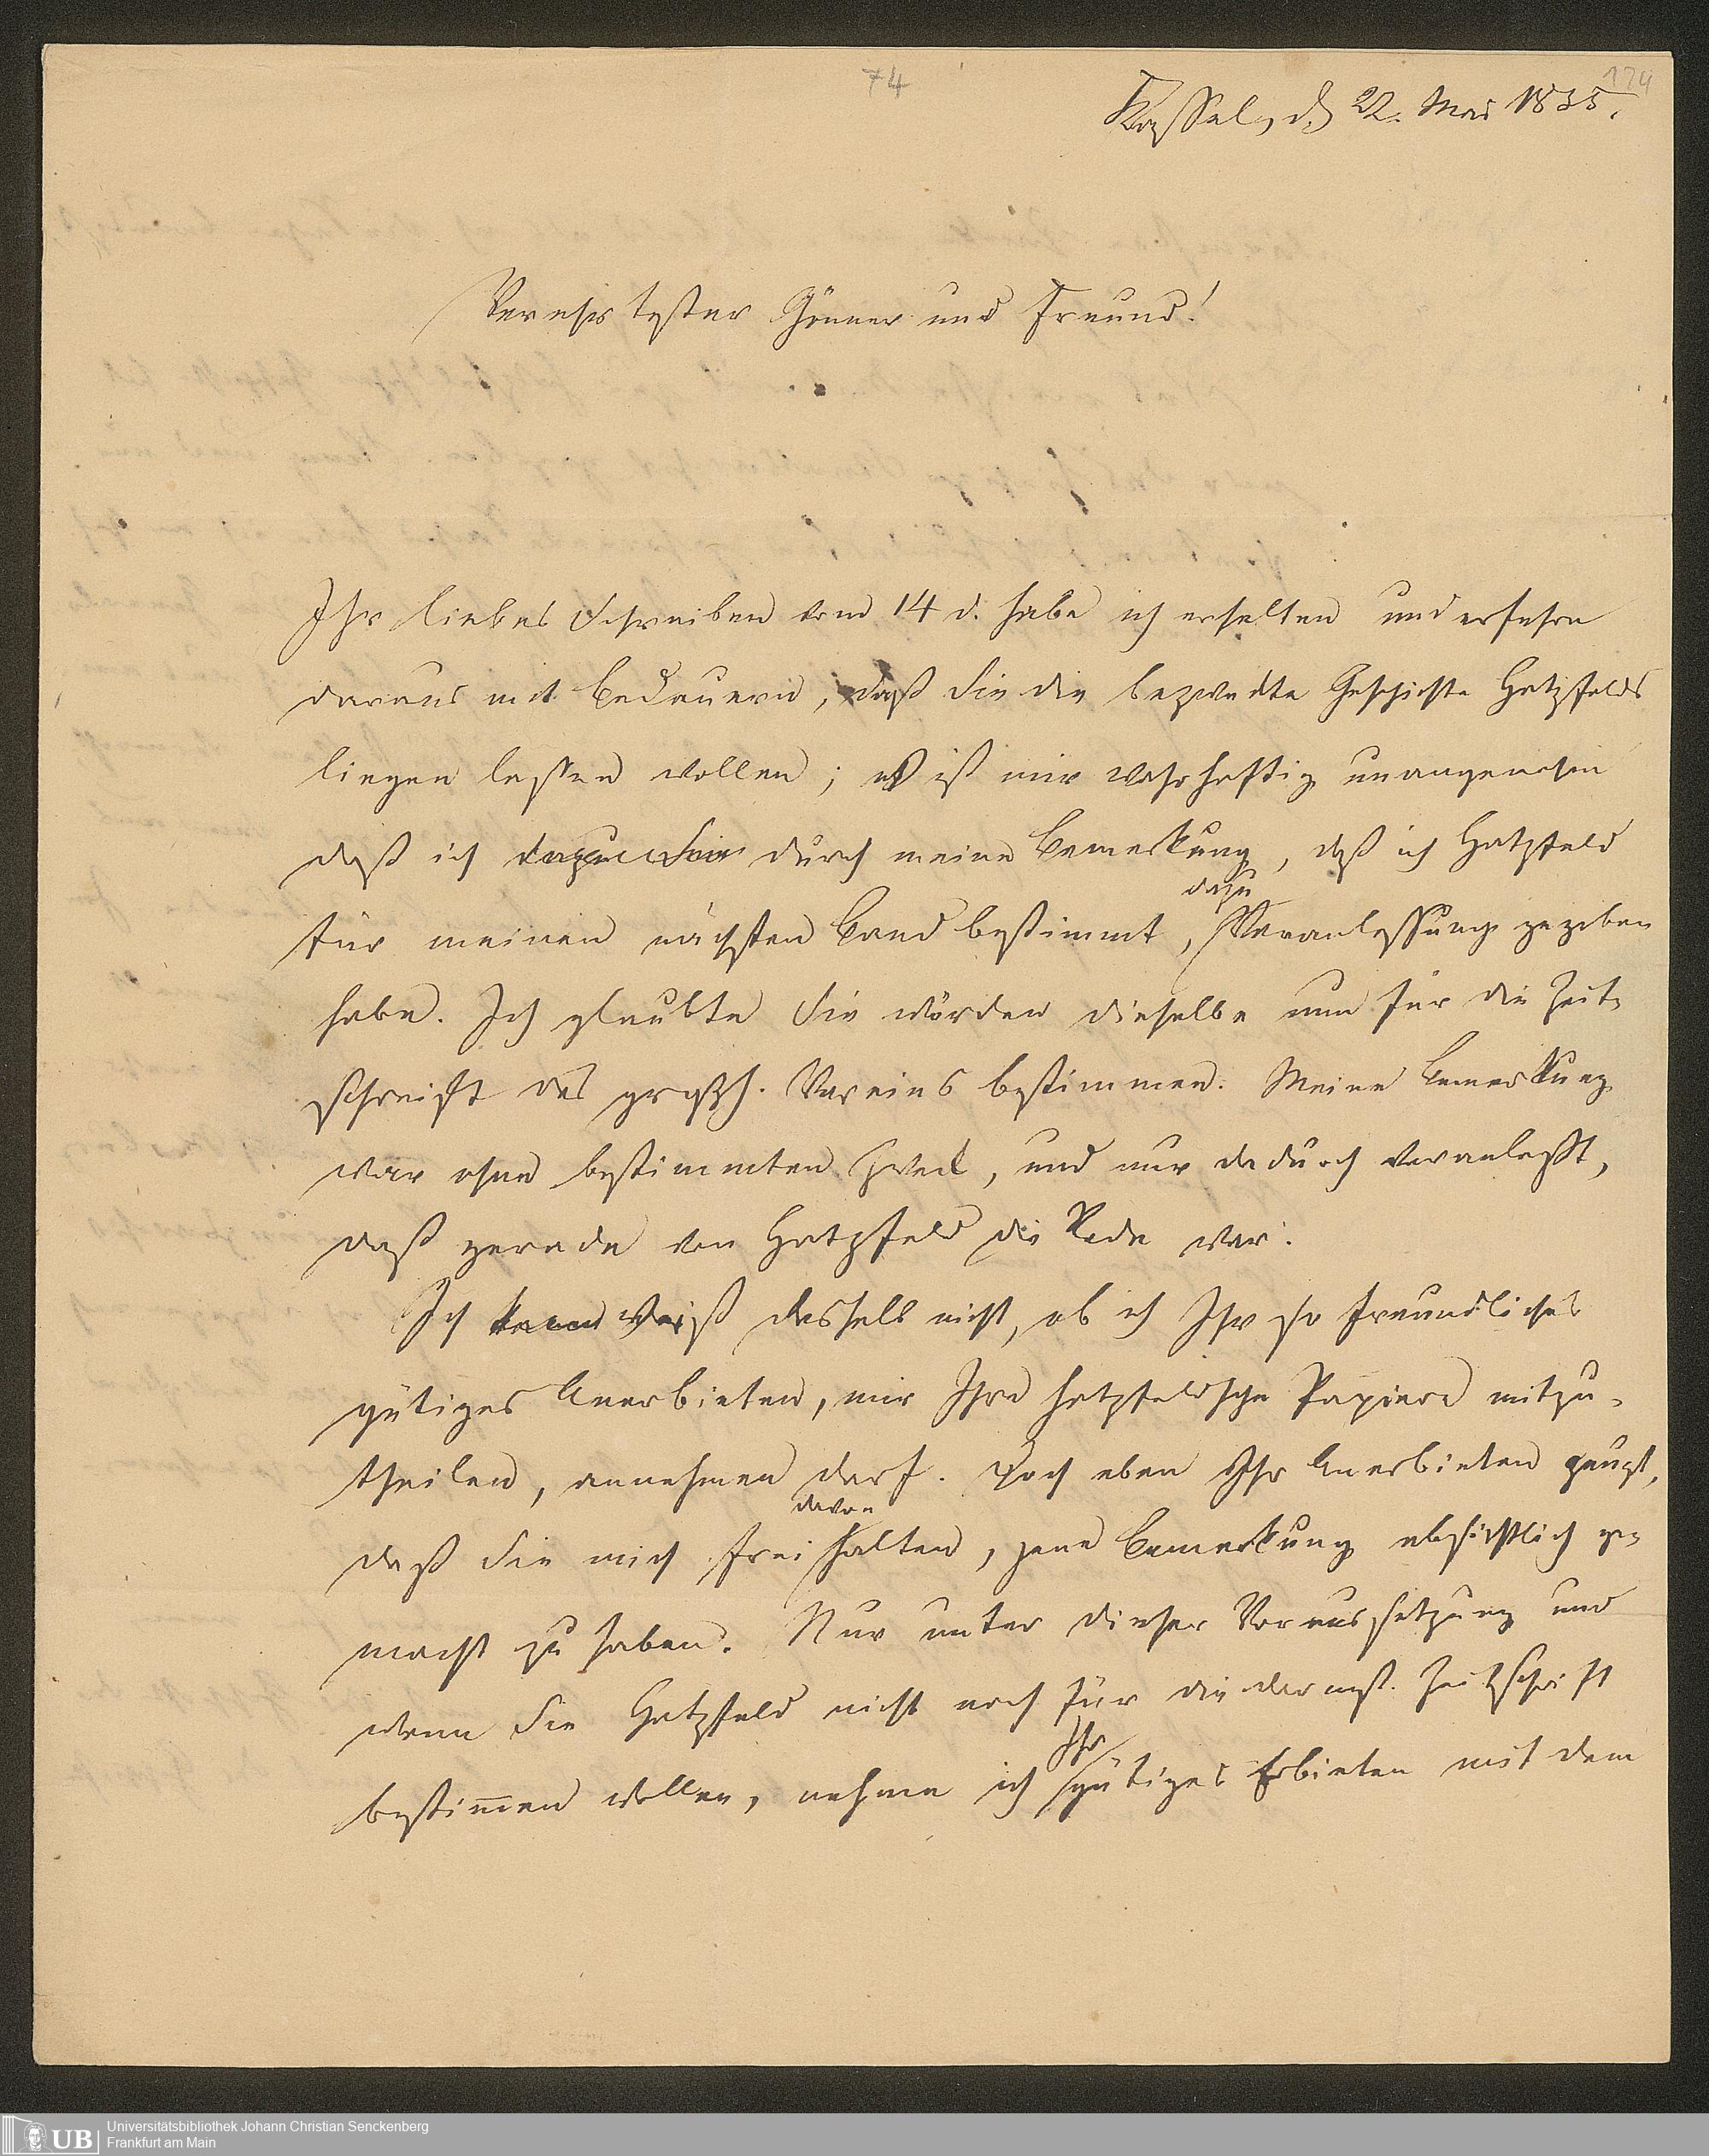 74
124
Kassel, d. 22. Mai 1835.
Verehrtester Gönner und Freund!
Ihr liebes Schreiben vom 14 d. habe ich erhalten und erfahre
daraus mit Bedauern, daß Sie die bezweckte Geschichte Hatzfelds
liegen lassen wollen; es ist mir wahrhaftig unangenehm
daß ich durch meine Bemerkung, daß ich Hatzfeld
dazu
für meinen nächsten Band bestimmt, Veranlassung gegeben
habe. Ich glaubte Sie würden dieselbe nun für die Zeit-
schrift des grosh. Vereins bestimmen. Meine Bemerkung
war ohne bestimmten Zweck, und nur dadurch veranlaßt,
daß gerade von Hatzfeld die Rede war.
Ich kann weiß deshalb nicht, ob ich Ihr so freundliches
gütiges Anerbieten, mir Ihre hatzfeldsche Papiere mitzu-
theilen, annehmen darf. Doch eben Ihr Anerbieten zeugt,
davon
daß Sie mich frei halten, jene Bemerkung absichtlich ge-
macht zu haben. Nur unter dieser Voraussetzung und
wenn Sie Hatzfeld nicht noch für die darmst. Zeitschrift
Ihr
bestimmen wollen, nehme ich gütiges Erbieten mit dem
UB
Universitätsbibliothek Johann Christian Senckenberg
Frankfurt am Main